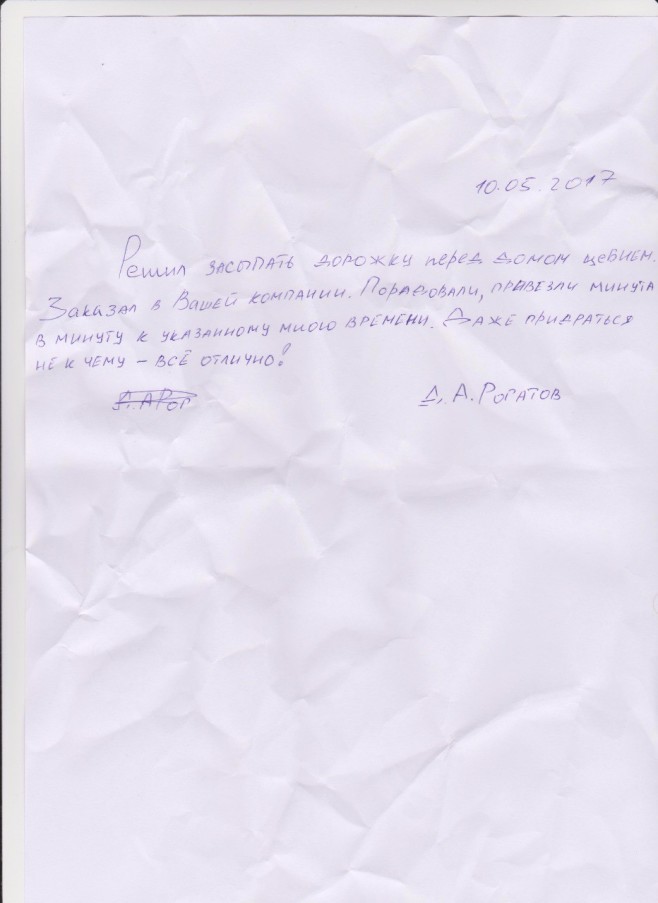 10.05.2017
Решил засыпать дорожку перед домом щебнем.
Заказал в Вашей компании. Порадовали, привезли минута
в минуту к указанному мною времени. Даже придраться
не к чему – всё отлично!
Д.А Рог
Д.А.Рогатов